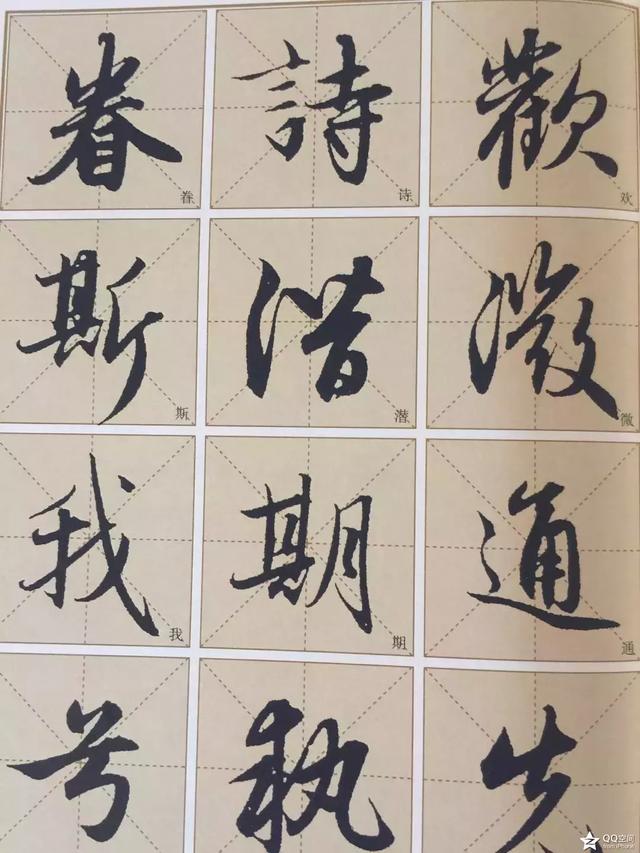 歡 欢
微 微
通 通
詩 诗
潛 潜
期 期
執
眷 眷
斯 斯
我 我
QQ空间
from iPhone